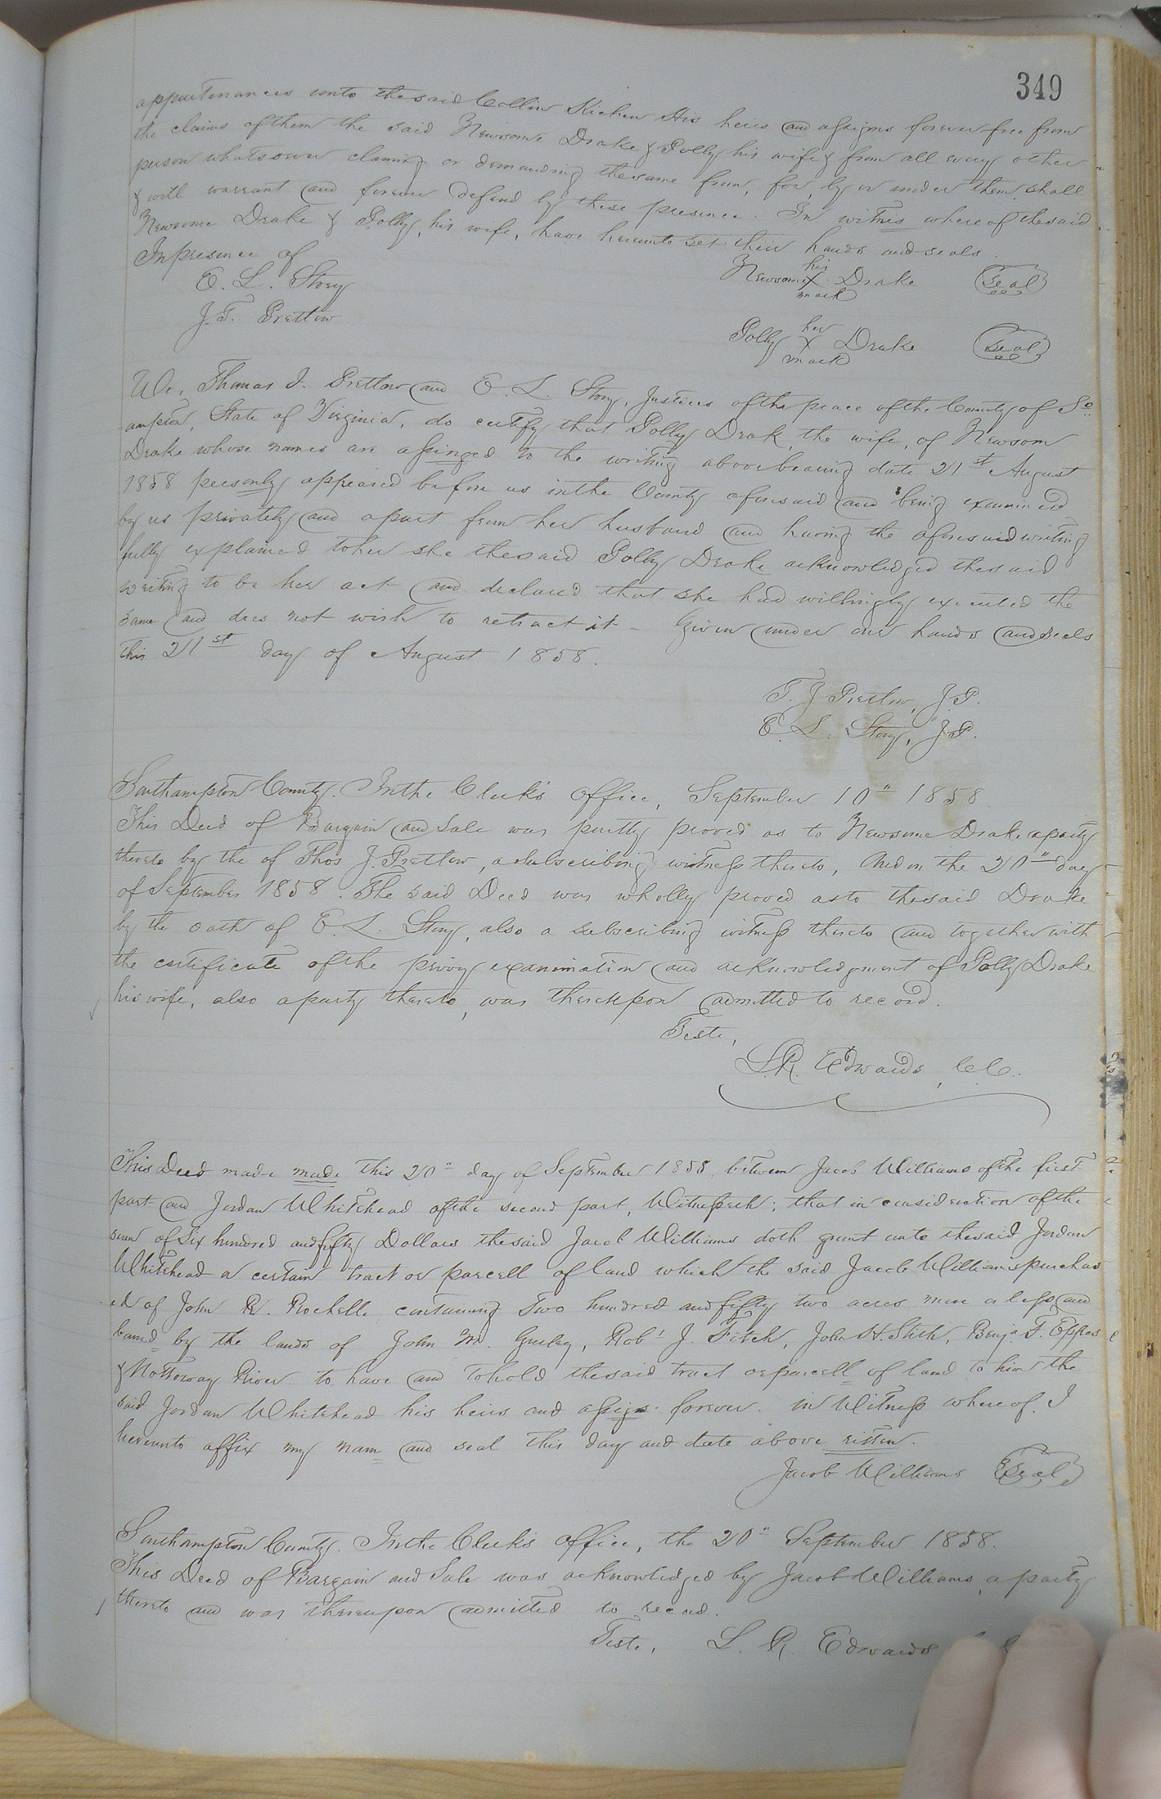 349
appurtenances unto the said Collin Kitchen His heirs and assigns forever free from
the claims of them the said Newsome Drake & Polly his wife & from all every other
person whatsoever claiming or demanding the same from, for by or under them shall
& will warrant and forever defend by these presence. In witness where of the said
Newsome Drake & Polly, his wife, have hereunto set their hands and seals.
In presence of
E. L. Story
J. T. Pretlow
Newsome his X mark Drake (Seal)
Polly her X mark Drake (Seal)
We, Thomas J. Pretlow and E. L. Story, Justices of the peace of the County of So
ampton, State of Virginia, do certify that Polly Drak, the wife, of Newsom
Drake whose names are assinged to the writing above bearing date 21st August
1858 pesonly appeared before us in the County aforesaid and being examined
by us privately and apart from her husband and having the aforesaid writing
fully explained to her she the said Polly Drake acknowledged the said
writing to be her act and declared that she had willingly executed the
same and does not wish to retract it - Given under our hands and seals
this 21st day of August 1858.
T. J Pretlow, J.P.
E. L. Story, J.P.
Southampton County. In the Clerk's office, September 10" 1858
This Deed of Bargain and Sale was partly proved as to Newsome Drake a party
thereto by the of Thos J. Pretlow, a subscribing witness thereto, And on the 20" day
of September 1858. The said Deed was wholly proved as to the said Drake
by the oath of E. L. Story, also a subscribing witness thereto and together with
the certificate of the privy examination and acknowledgment of Polly Drake
his wife, also a party thereto, was thereupon admitted to record.
Teste,
L. R. Edwards, C.C.
This Deed made made this 20" day of September 1858 between Jacob Williams of the first
part and Jordan Whitehead of the second part, Witnesseth; that in consideration of the
sum of Six hundred and fifty Dollars the said Jacob Williams doth grant unto the said Jordan
Whitehead a certain tract or parcell of land which the said Jacob Williams purchas
ed of John R. Rochelle containing Two hundred and fifty two acres more or less and
bound by the lands of John M. Gurley, Robt J. Fitch, John H. Stith, Benja F. Eppes
& Nottoway River to have and to hold the said tract or parcell of land to him the
said Jordan Whitehead his heirs and assigs forever. in Witness where of I
hereunto affix my nam and seal this day and date above ritten.
Jacob Williams (Seal)
Southampton County. In the Clerk's office, the 20" September 1858.
This Deed of Bargain and Sale was acknowledged by Jacob Williams, a party
thereto and was thereupon admitted to record.
Teste, L. R. Edwards